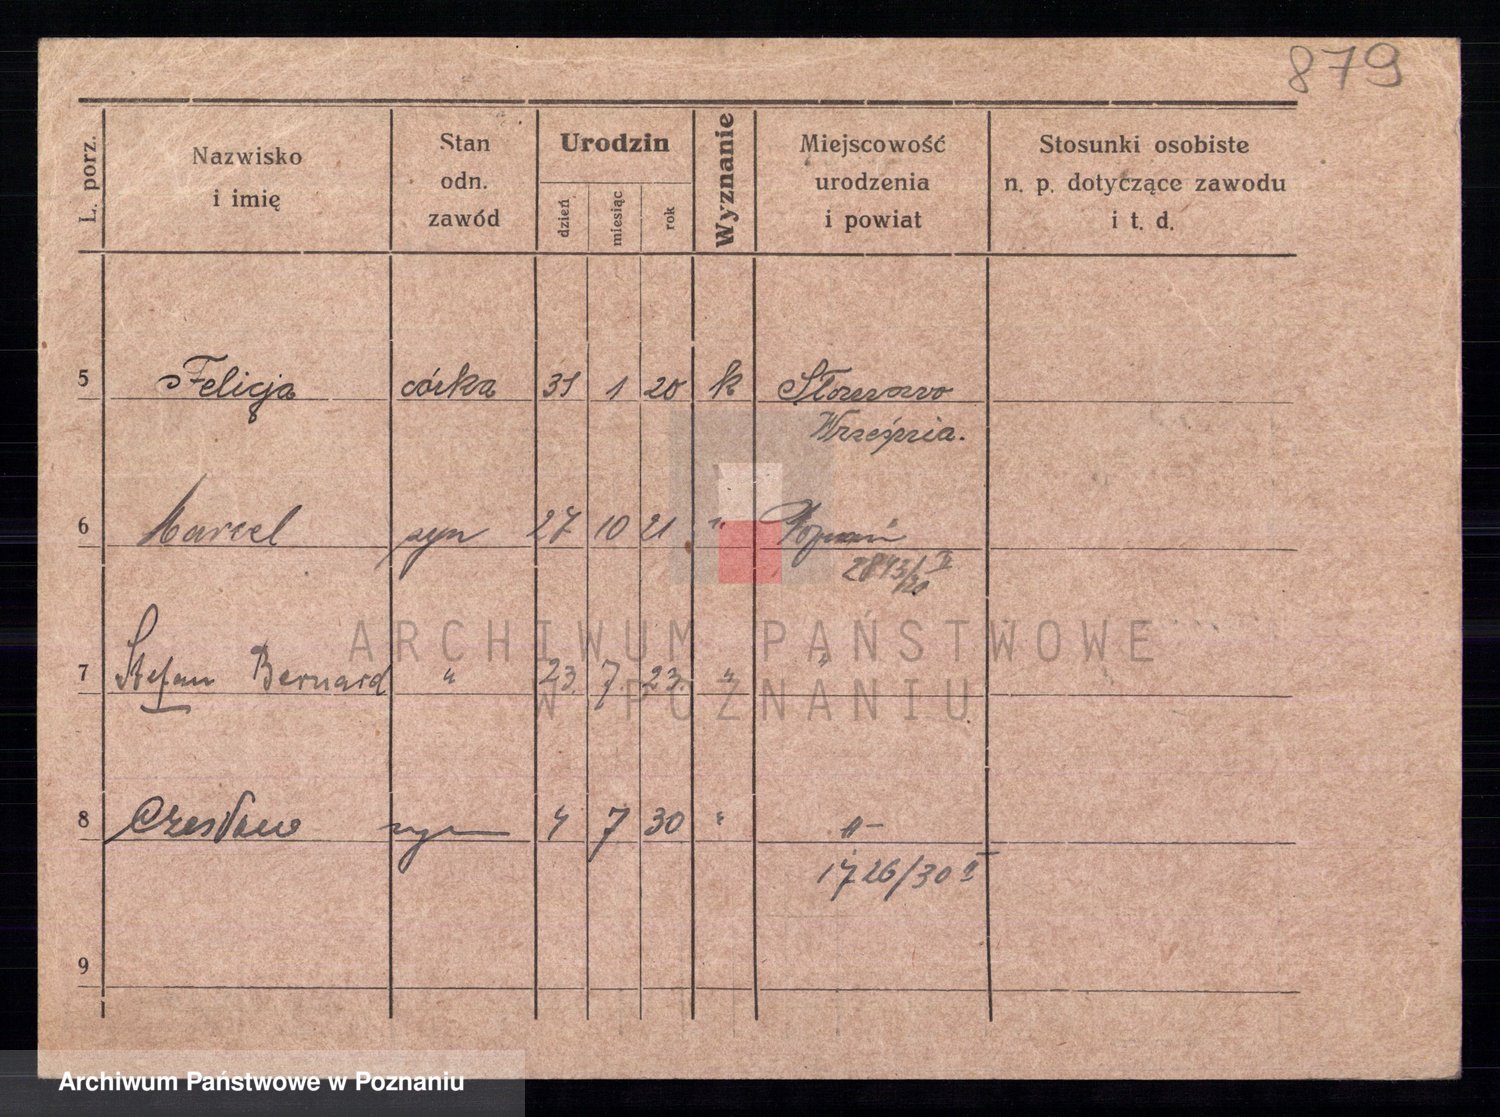 879
L. porz.
Nazwisko
i imię
Stan
odn.
zawód
Urodzin
dzień
miesiąc
rok
Wyznanie
Miejscowość
urodzenia
i powiat
Stosunki osobiste
n. p. dotyczące zawodu
i t. d.
5 Felicja córka 31 1 20 k
Września.
6 Marcel syn 27 10 21 " Poznań
7 Stefan Bernard " 23. 7 23. " "
8 Czesław syn 4 7 30 " "–
1726/30 II
9
ARCHIWUM PAŃSTWOWE
W POZNANIU
Archiwum Państwowe w Poznaniu